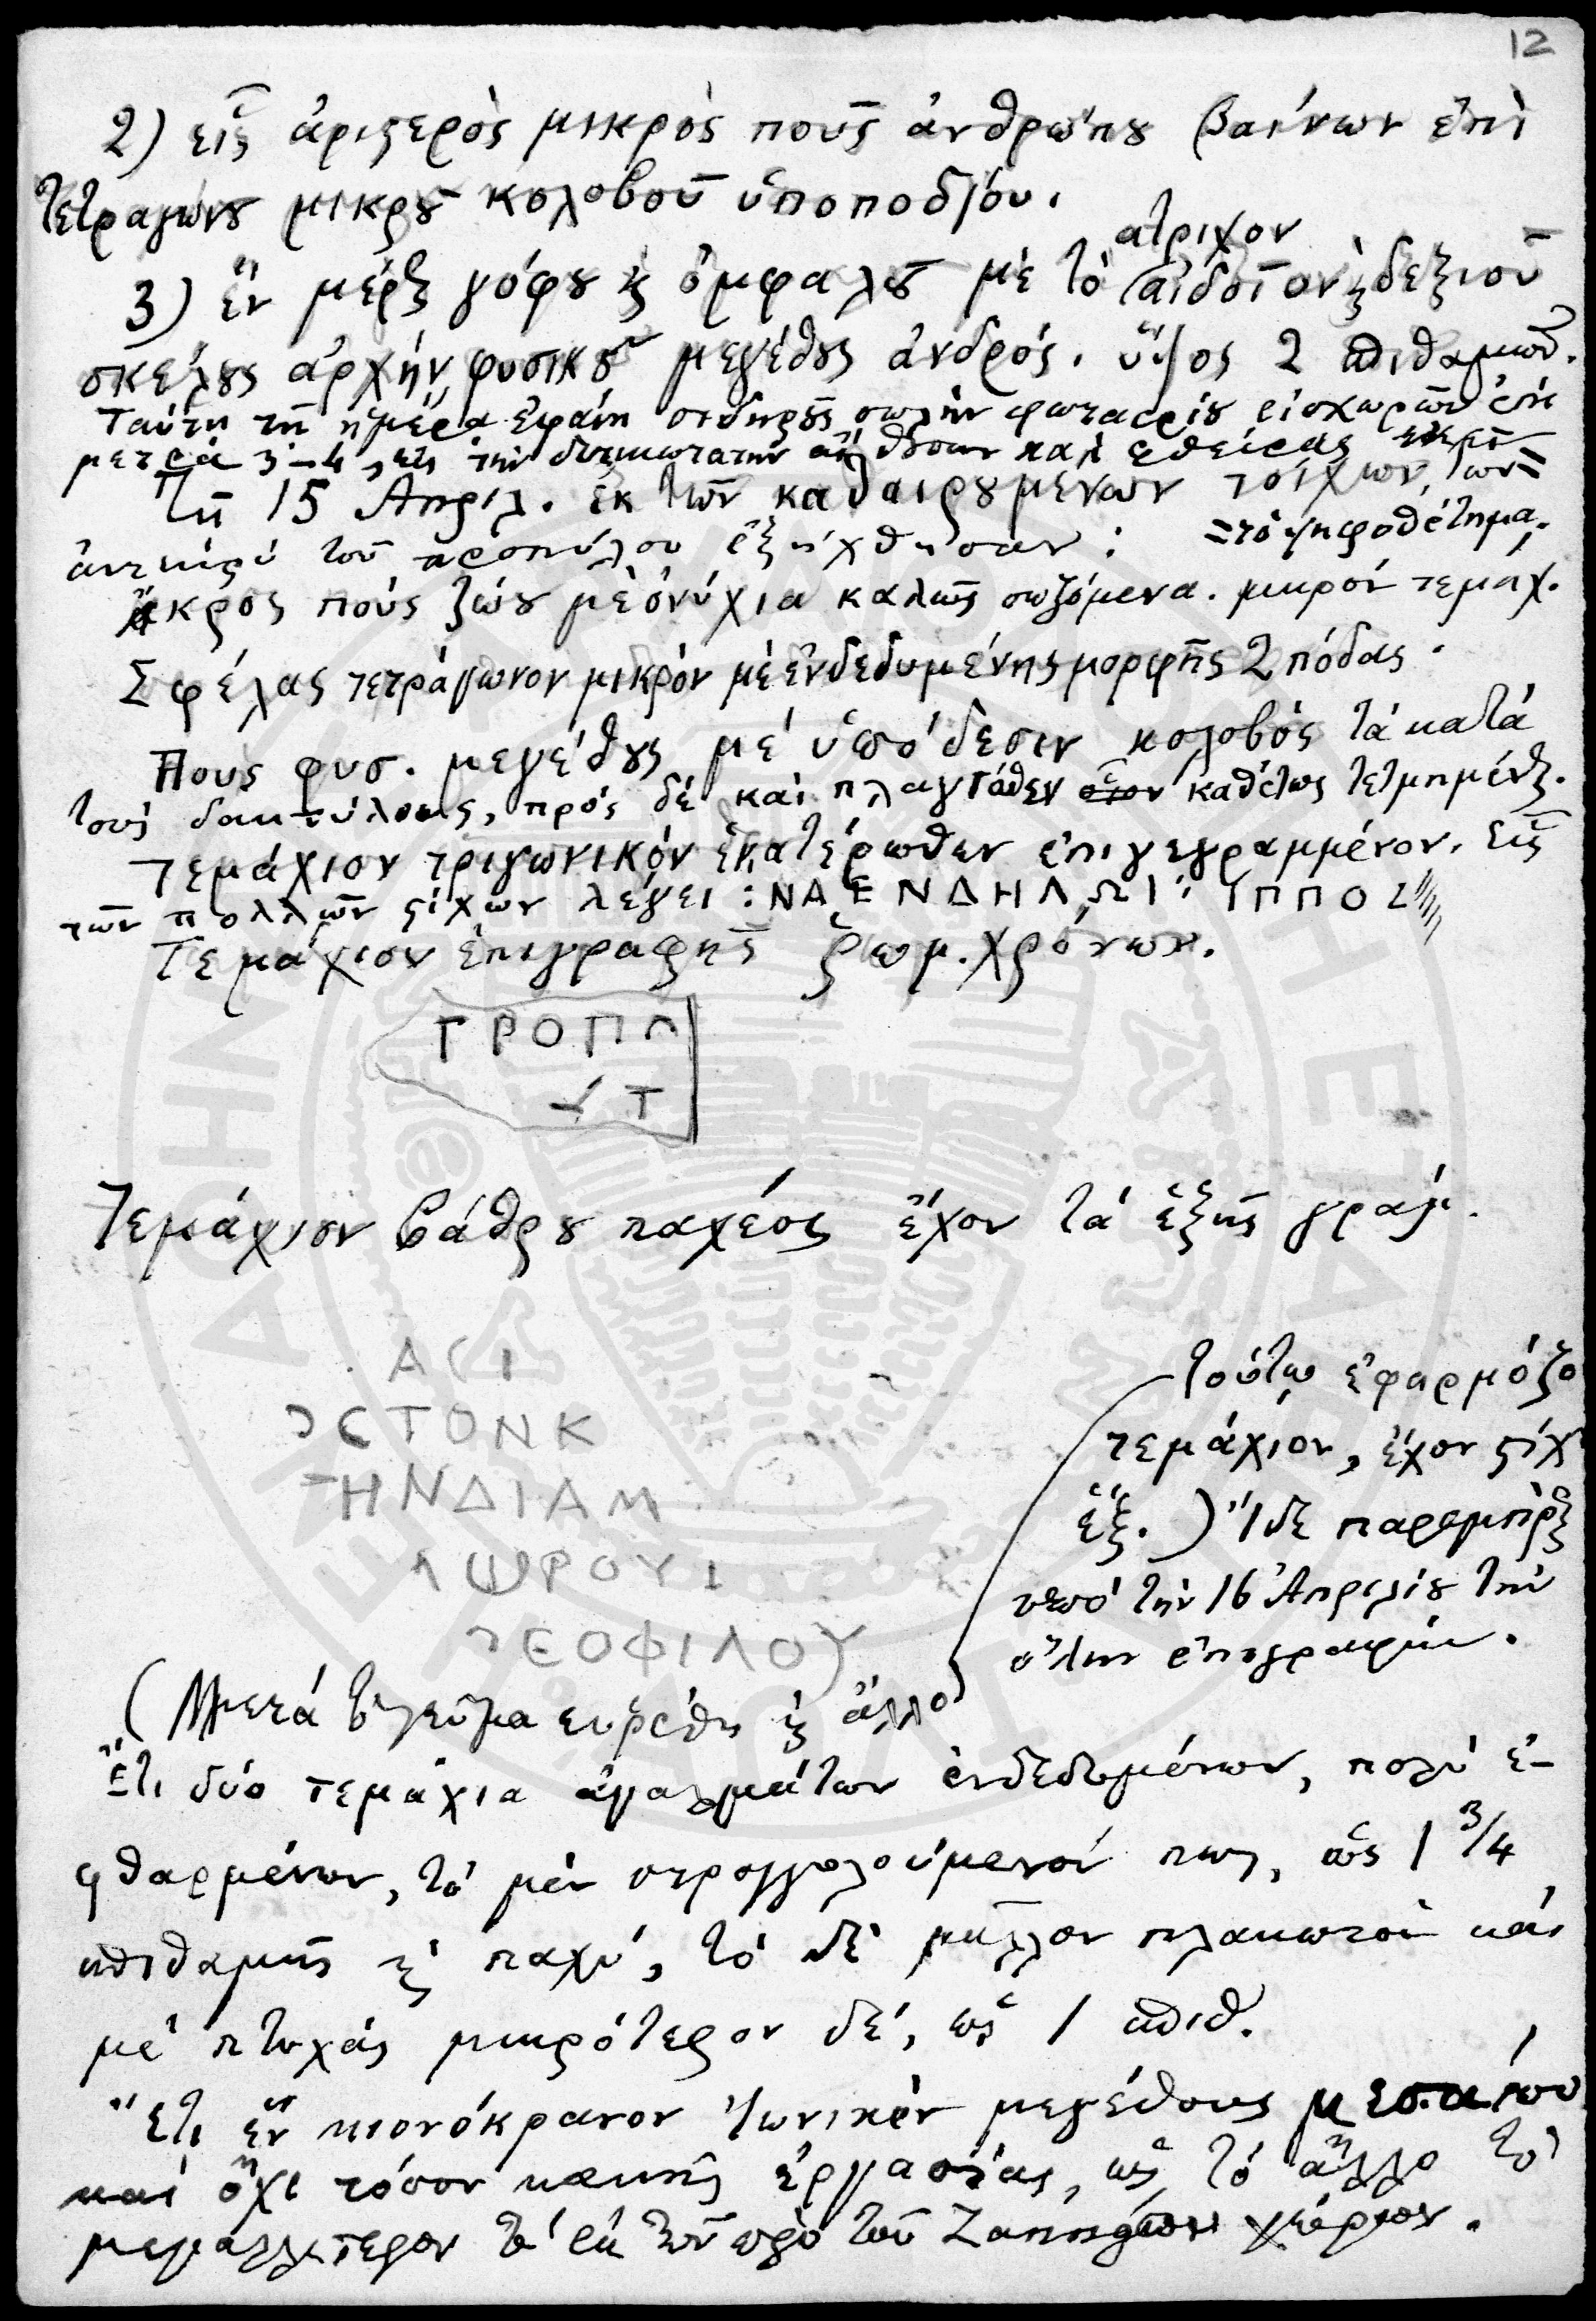 12
2) εἷς ἀριστερὸς μικρὸς ποῦς ἀνθρώπου βαίνων ἐπὶ
τετραγώνου μικροῦ κολοβοῦ ὑποποδίου.
ἄτριχον
3) ἓν μέρος γόφου καὶ ὀμφαλοῦ μὲ τὸ αἰδοῖον καὶ δεξιοῦ
σκέλους ἀρχήν, φυσικοῦ μεγέθους ἀνδρός. ὕψος 2 σπιθαμῶν.
Ταύτῃ τῇ ἡμέρᾳ ἐφάνη σιδηροῦς σωλὴν φωταερίου εἰσχωρῶν ἐπὶ
μετρα 3-4, εἰς τὴν δυτικωτάτην αἴθουσαν καὶ φθείρας ἐκεῖ
Τῇ 15 Ἀπριλ. ἐκ τῶν καθαιρουμένων τοίχων, των =
ἀντικρύ τοῦ προπύλου ἐξήχθησαν: = τὸ ψηφοθέτημα.
Ἄκρος ποὺς ζώου μὲ ὀνύχια καλῶς σωζόμενα. μικρόν τεμάχ.
Σφέλας τετράγωνον μικρὸν μὲ ἐνδεδυμένης μορφῆς 2 πόδας.
Ποὺς φυσ. μεγέθους μὲ ὑπόδεσιν κολοβὸς τὰ κατὰ
τοὺς δακτύλους, πρὸς δὲ καὶ πλαγιόθεν καθέτως τετμημένος.
Τεμάχιον τριγωνικὸν ἑκατέρωθεν ἐπιγεγραμμένον. εἷς
τῶν πολλῶν στίχων λέγει: ΝΑΕΝΔΗΛΩΙ: ΙΠΠΟΣ
Τεμάχιον ἐπιγραφῆς ῥωμ. χρόνων.
ΤΡΟΠΛ
ΥΤ
Τεμάχιον βάθρου παχέος ἔχον τὰ ἑξῆς γράμ.
ΑϹΙ
ϽϹΤΟΝΚ
ΤΗΝΔΙΑΜ
ΛΩΡΟΥΙ
ϽΕΟΦΙΛΟΥ
Τούτῳ ἐφαρμόζο
τεμάχιον, ἔχον στίχ
ἕξ.) Ἴδε παρεμπρὸς
ὑπὸ τὴν 16 Ἀπριλίου τὴν
ὅλην ἐπιγραφήν.
(Μετὰ τὸ γεῦμα εὑρέθη καὶ ἄλλο
Ἔτι δύο τεμάχια ἀγαλμάτων ἐνδεδυμένων, πολὺ ἐ-
φθαρμένων, τὸ μὲν στρογγυλούμενόν πως, ὡς 1 3/4
σπιθαμῆς καὶ παχύ, τὸ δὲ μᾶλλον πλακωτὸν καὶ
μὲ πτυχάς μικρότερον δέ, ὡς 1 σπιθ.
Ἔτι ἓν κιονόκρανον Ἰωνικὸν μεγέθους μεσαίου
καὶ ὄχι τόσον κακῆς ἐργασίας, ὡς τὸ ἄλλο τὸ
μεγαλλίτερον τὸ ἐκ τῶν πρὸ τοῦ Ζαππείου